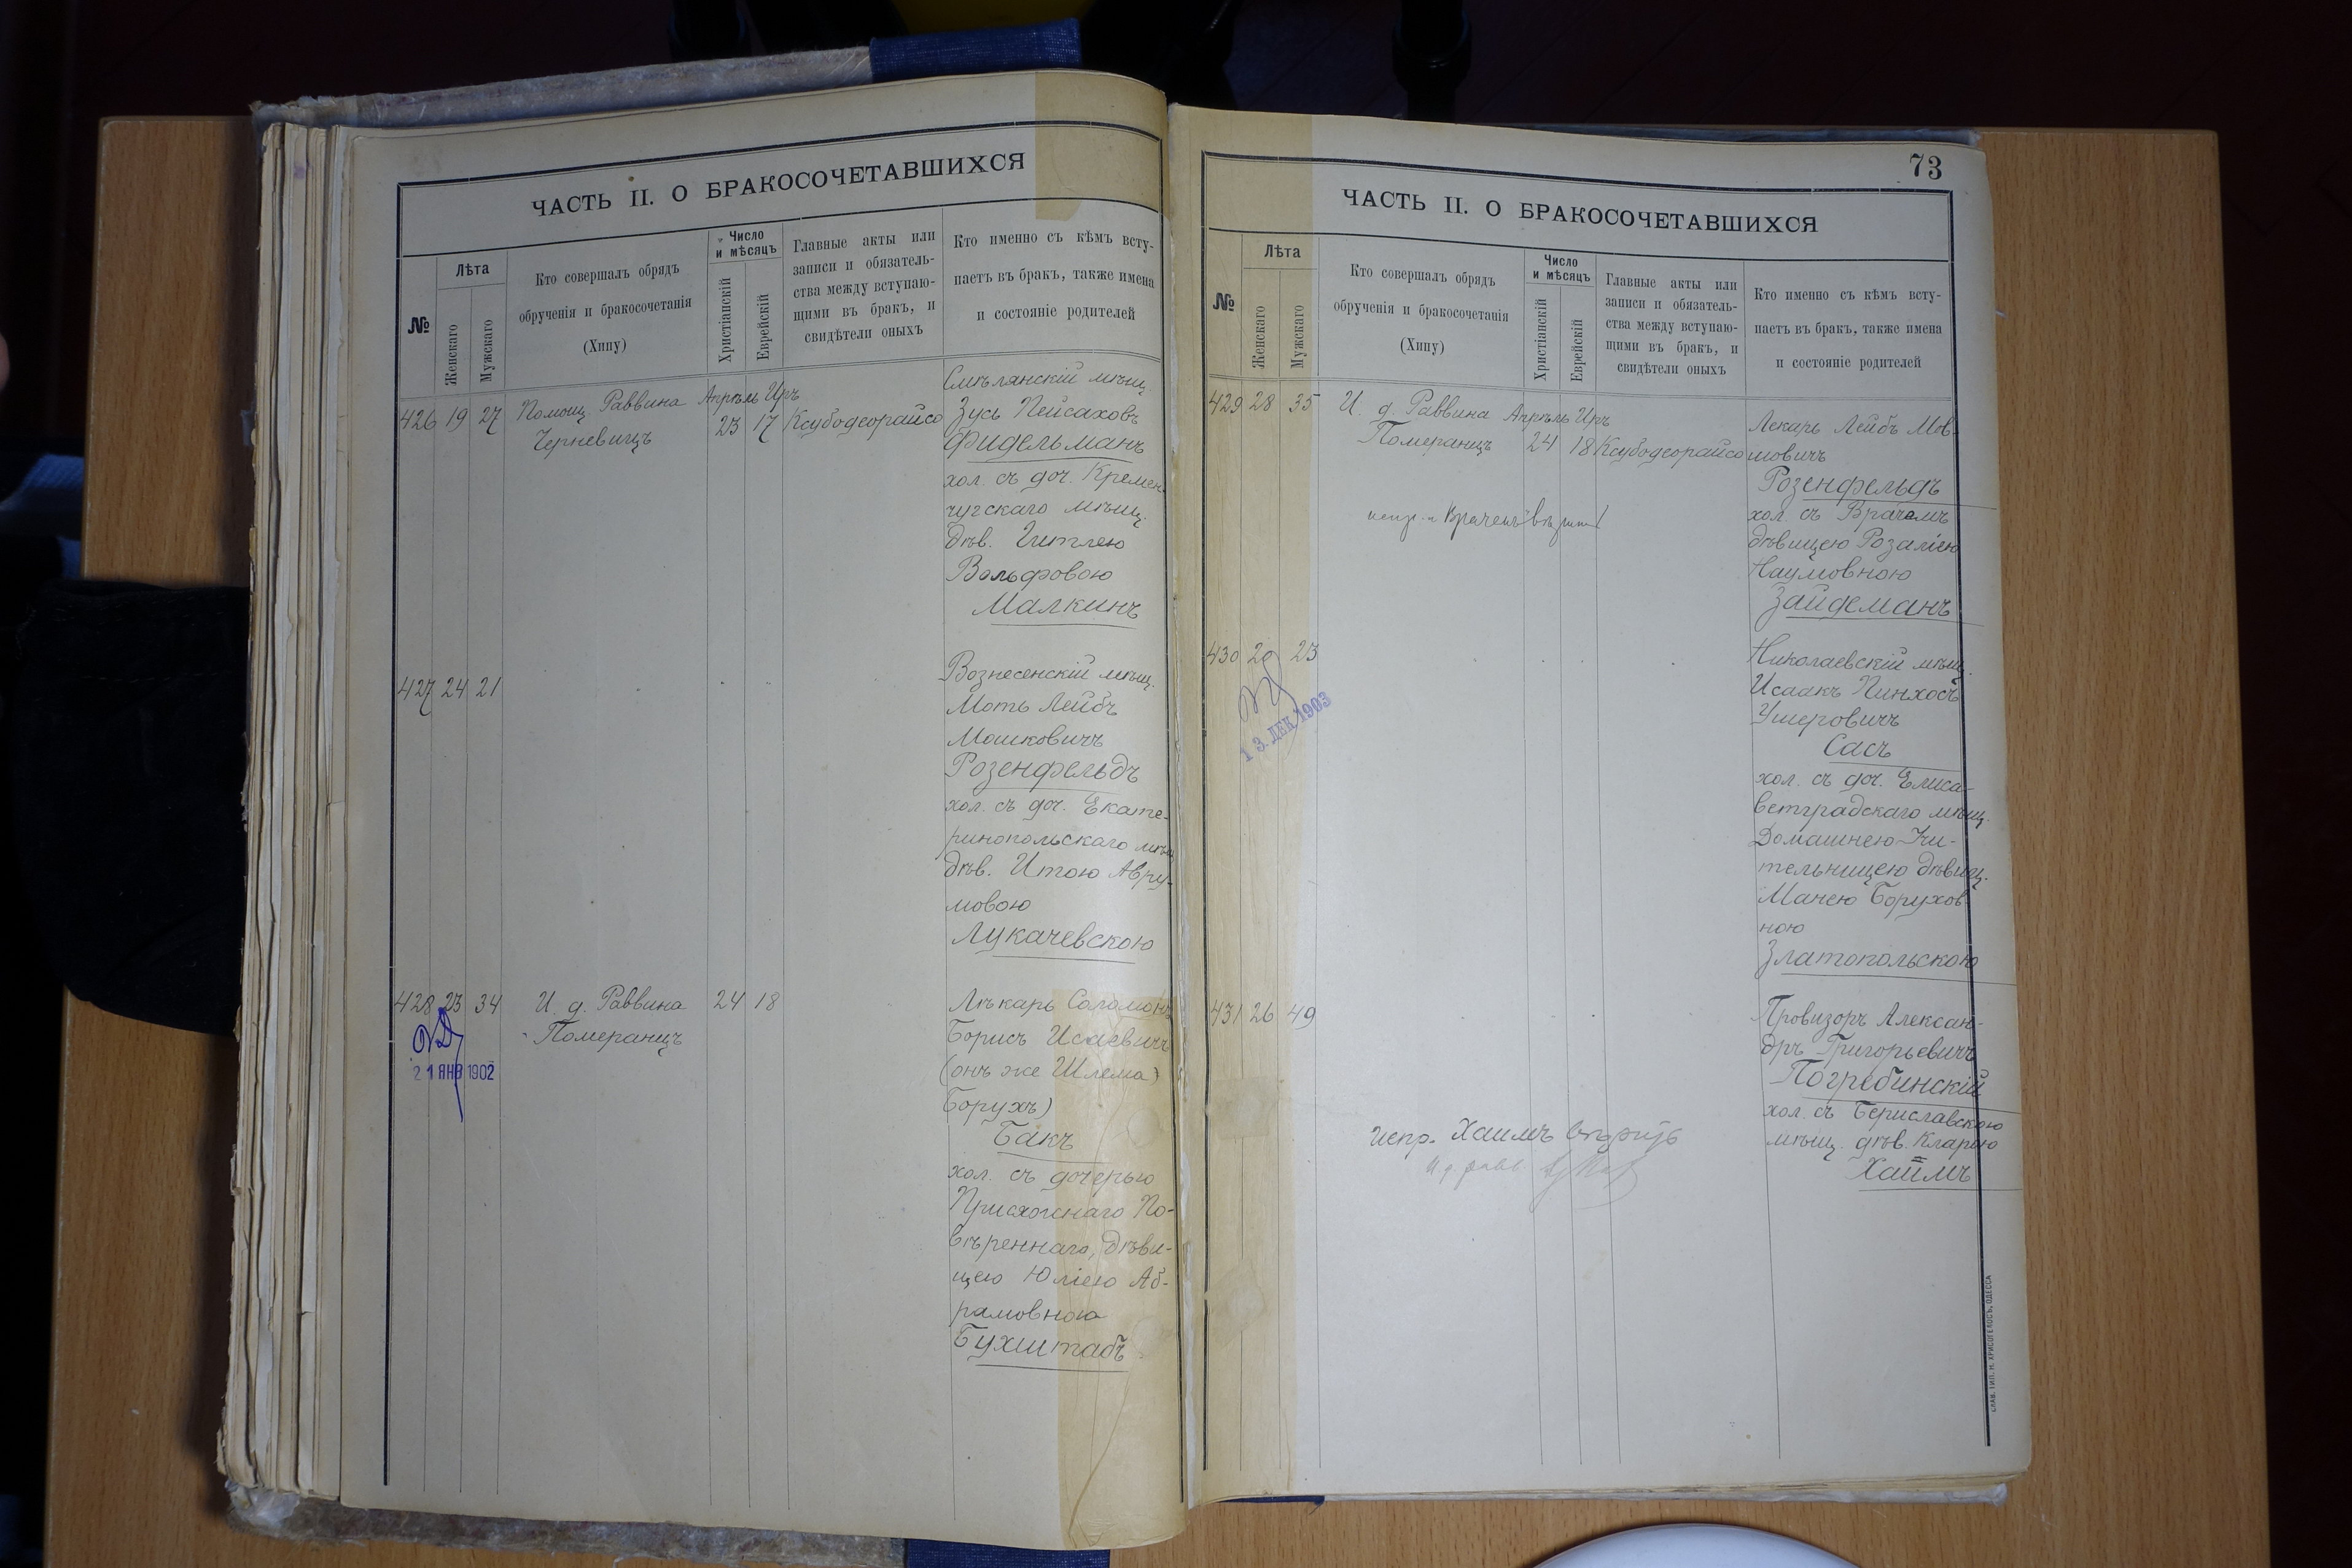 ЧАСТЬ II. О БРАКОСОЧЕТАВШИХСЯ
№
Лѣта
Женскаго
Мужскаго
Кто совершалъ обрядъ
обрученія и бракосочетанія
(Хипу)
Число
и мѣсяцъ
Христіанскій
Еврейскій
Главные акты или
записи и обязатель-
ства между вступаю-
щими въ бракъ, и
свидѣтели оныхъ
Кто именно съ кѣмъ всту-
паетъ въ бракъ, также имена
и состояніе родителей
426 19 27 Помощ. Раввина Апрѣль Иръ
Черневицъ 23 17 Ксубодеорайсо
Смѣлянскій мѣщ.
Зусь Пейсаховъ
Фидельманъ
хол. съ доч. Кремен-
чугскаго мѣщ.
дѣв. Гитлею
Вольфовою
Малкинъ
427 24 21
Вознесенскій мѣщ.
Моть Лейбъ
Мошковичъ
Розенфельдъ
хол. съ доч. Екате-
ринопольскаго мѣщ
дѣв. Итою Авру-
мовою
Лукачевскою
428 23 34 И. д. Раввина 24 18
Померанцъ
21 ЯНВ 1902
Лѣкарь Соломонъ
Борисъ Исаевичъ
(онъ же Шлема
Борухъ)
Бакъ
хол. съ дочерью
Присяжнаго По-
вѣреннаго, дѣви-
цею Юліею Аб-
рамовною
Бухштабъ
73
ЧАСТЬ II. О БРАКОСОЧЕТАВШИХСЯ
№
Лѣта
Женскаго
Мужскаго
Кто совершалъ обрядъ
обрученія и бракосочетанія
(Хипу)
Число
и мѣсяцъ
Христіанскій
Еврейскій
Главные акты или
записи и обязатель-
ства между вступаю-
щими въ бракъ, и
свидѣтели оныхъ
Кто именно съ кѣмъ всту-
паетъ въ бракъ, также имена
и состояніе родителей
429 28 35 И. д. Раввина Апрѣль Иръ
Померанцъ 24 18 Ксубодеорайсо
Лекарь Лейбъ Мов-
шовичъ
Розенфельдъ
хол. съ Врачемъ
дѣвицею Розаліею
Наумовною
Зайдеманъ
430 29 23
13. ДЕК 1903
Николаевскій мѣщ.
Исаакъ Пинхосъ
Ушеровичъ
Сасъ
хол. съ доч. Елиса-
ветградскаго мѣщ.
Домашнею Учи-
тельницею дѣвиц.
Манею Борухов-
ною
Златопольскою
431 26 49
Провизоръ Алексан-
дръ Григорьевичъ
Погребинскій
хол. съ Бериславскою
мѣщ. дѣв. Кларою
Хаимъ
испр. Хаимъ вѣрить
СКЛ. ТИП. М. ХРИСОГЕЛОСЪ, ОДЕССА